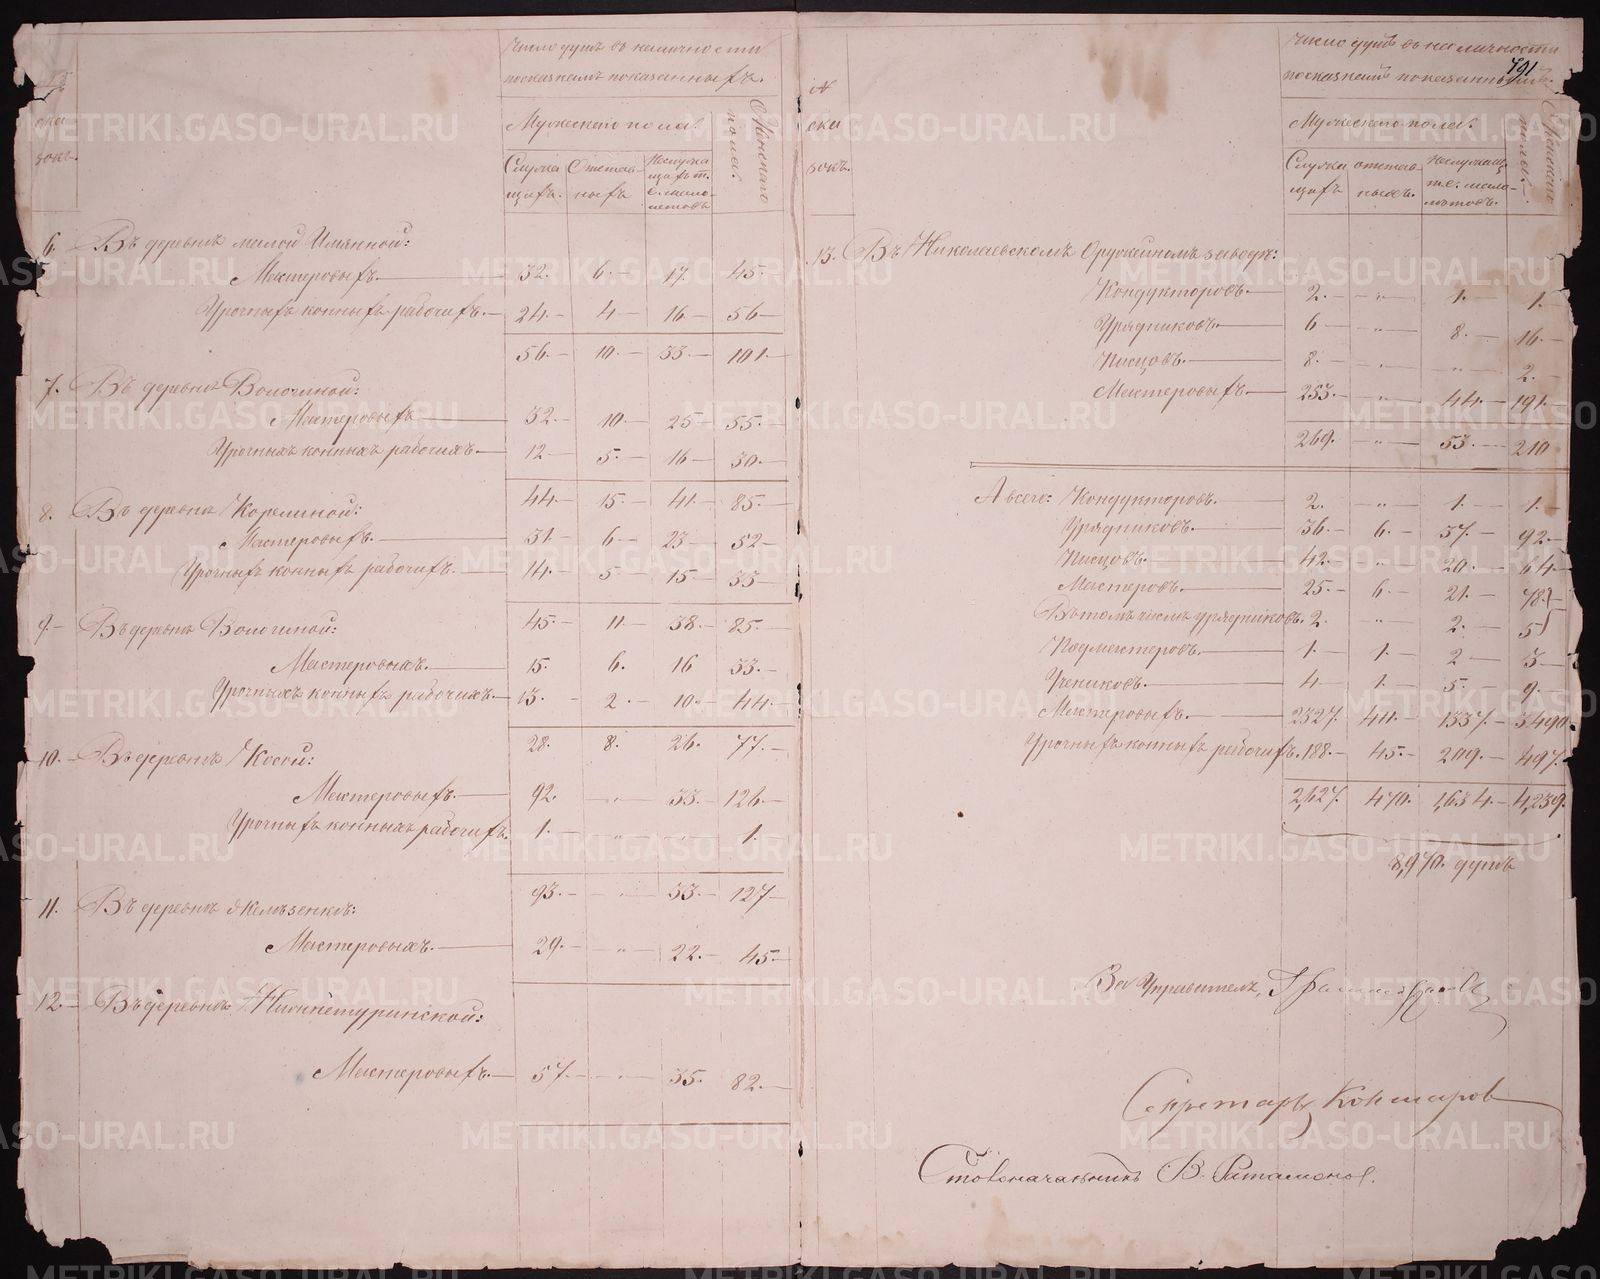 Число душъ въ наличности
по сказкамъ показанныхъ.
№
ска
зокъ.
Мужескаго пола.
Женскаго пола.
Служа
щихъ.
Отстав-
ныхъ
Неслужа
щихъ т.
е. мало-
летовъ
6. Въ деревнѣ малой Именной:
Мастеровыхъ. 32. 6. 17. 45.
Урочныхъ конныхъ рабочихъ. 24. 4 16. 56
56. 10. 33. 101.
7. Въ деревнѣ Вологиной:
Мастеровыхъ 32. 10. 25 55.
Урочныхъ конныхъ рабочихъ. 12 5. 16 30.
44. 15. 41. 85.
8. Въ деревнѣ Корелиной:
Мастеровыхъ. 31. 6 23 52
Урочныхъ конныхъ рабочихъ. 14. 5 15. 33
45. 11 38. 85.
9. Въ деревнѣ Вологиной:
Мастеровыхъ. 15. 6. 16 33.
Урочныхъ конныхъ рабочихъ. 13. 2. 10. 44.
28. 8. 26. 77.
10. Въ деревнѣ Косой:
Мастеровыхъ. 92. " 33. 126.
Урочныхъ конныхъ рабочихъ. 1. " " 1.
93. " 33. 127
11. Въ деревнѣ
Мастеровыхъ. 29. " 22. 45
12. Въ деревнѣ Нижнетуринской:
Мастеровыхъ. 57. " 35. 82.
791
Число душъ въ наличности
по сказкамъ показанныхъ.
№
ска
зокъ.
Мужескаго пола.
Женскаго пола.
Служа
щихъ
отстав-
ныхъ.
Неслужащ.
т.е. мало-
лѣтовъ.
13. Въ Николаевскомъ Оружейномъ заводѣ:
Кондукторовъ. 2. " 1. 1.
Урядниковъ. 6 " 8. 16.
Писцовъ. 8. " 2.
Мастеровыхъ 253. " 44. 191.
269. " 53. 210
А всего: Кондукторовъ. 2. " 1. 1.
Урядниковъ. 36. 6. 57. 92.
Писцовъ. 42. " 20. 64
Мастеровъ. 25. 6. 21. 78.
Въ томъ числѣ урядниковъ. 2. " 2. 5
Подмастеровъ. 1. 1. 2 3
Учениковъ. 4 1. 5. 9.
Мастеровыхъ. 2327. 411. 1337. 3490
Урочныхъ конныхъ рабочихъ. 188. 45. 209. 497.
2,627. 470. 1,634. 4,239.
8,970. душъ
За Управителя,
Секретарь
Столоначальникъ
METRIKI.GASO-URAL.RU